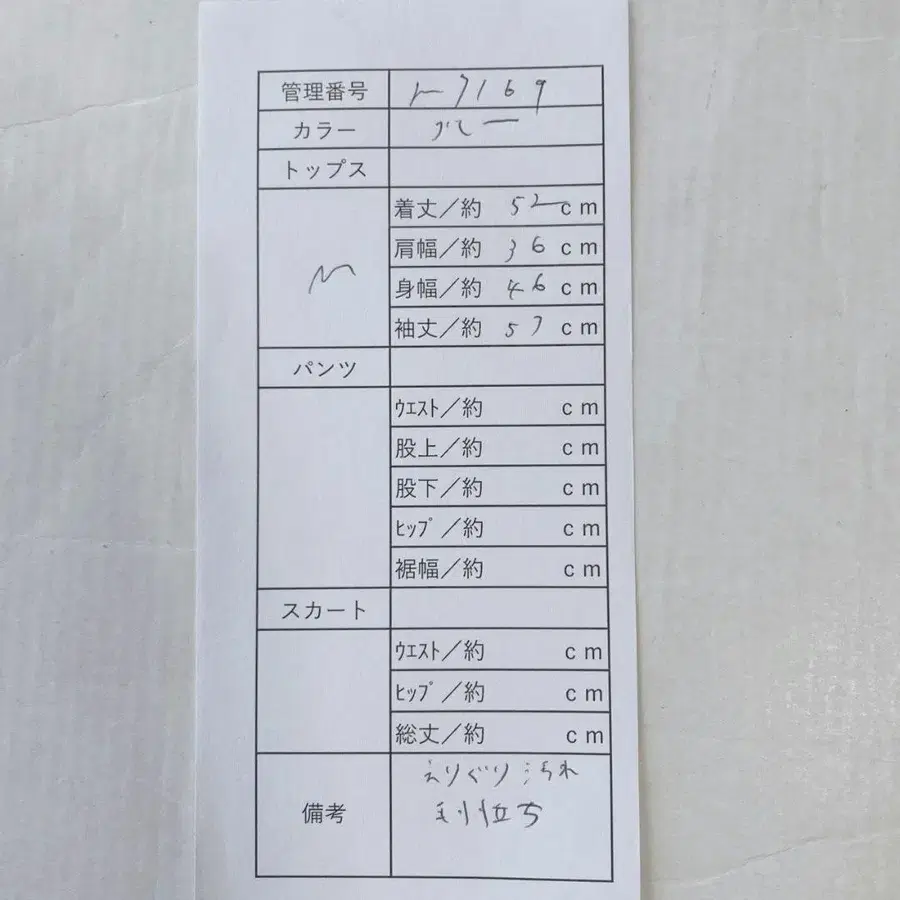 管理番号 7169
カラー グレー
トップス
M
着丈/約 52cm
肩幅/約 36cm
身幅/約 46cm
袖丈/約 57cm
パンツ
ウエスト/約 cm
股上/約 cm
股下/約 cm
ヒップ/約 cm
裾幅/約 cm
スカート
ウエスト/約 cm
ヒップ/約 cm
総丈/約 cm
備考
えりぐり汚れ
毛羽立ち